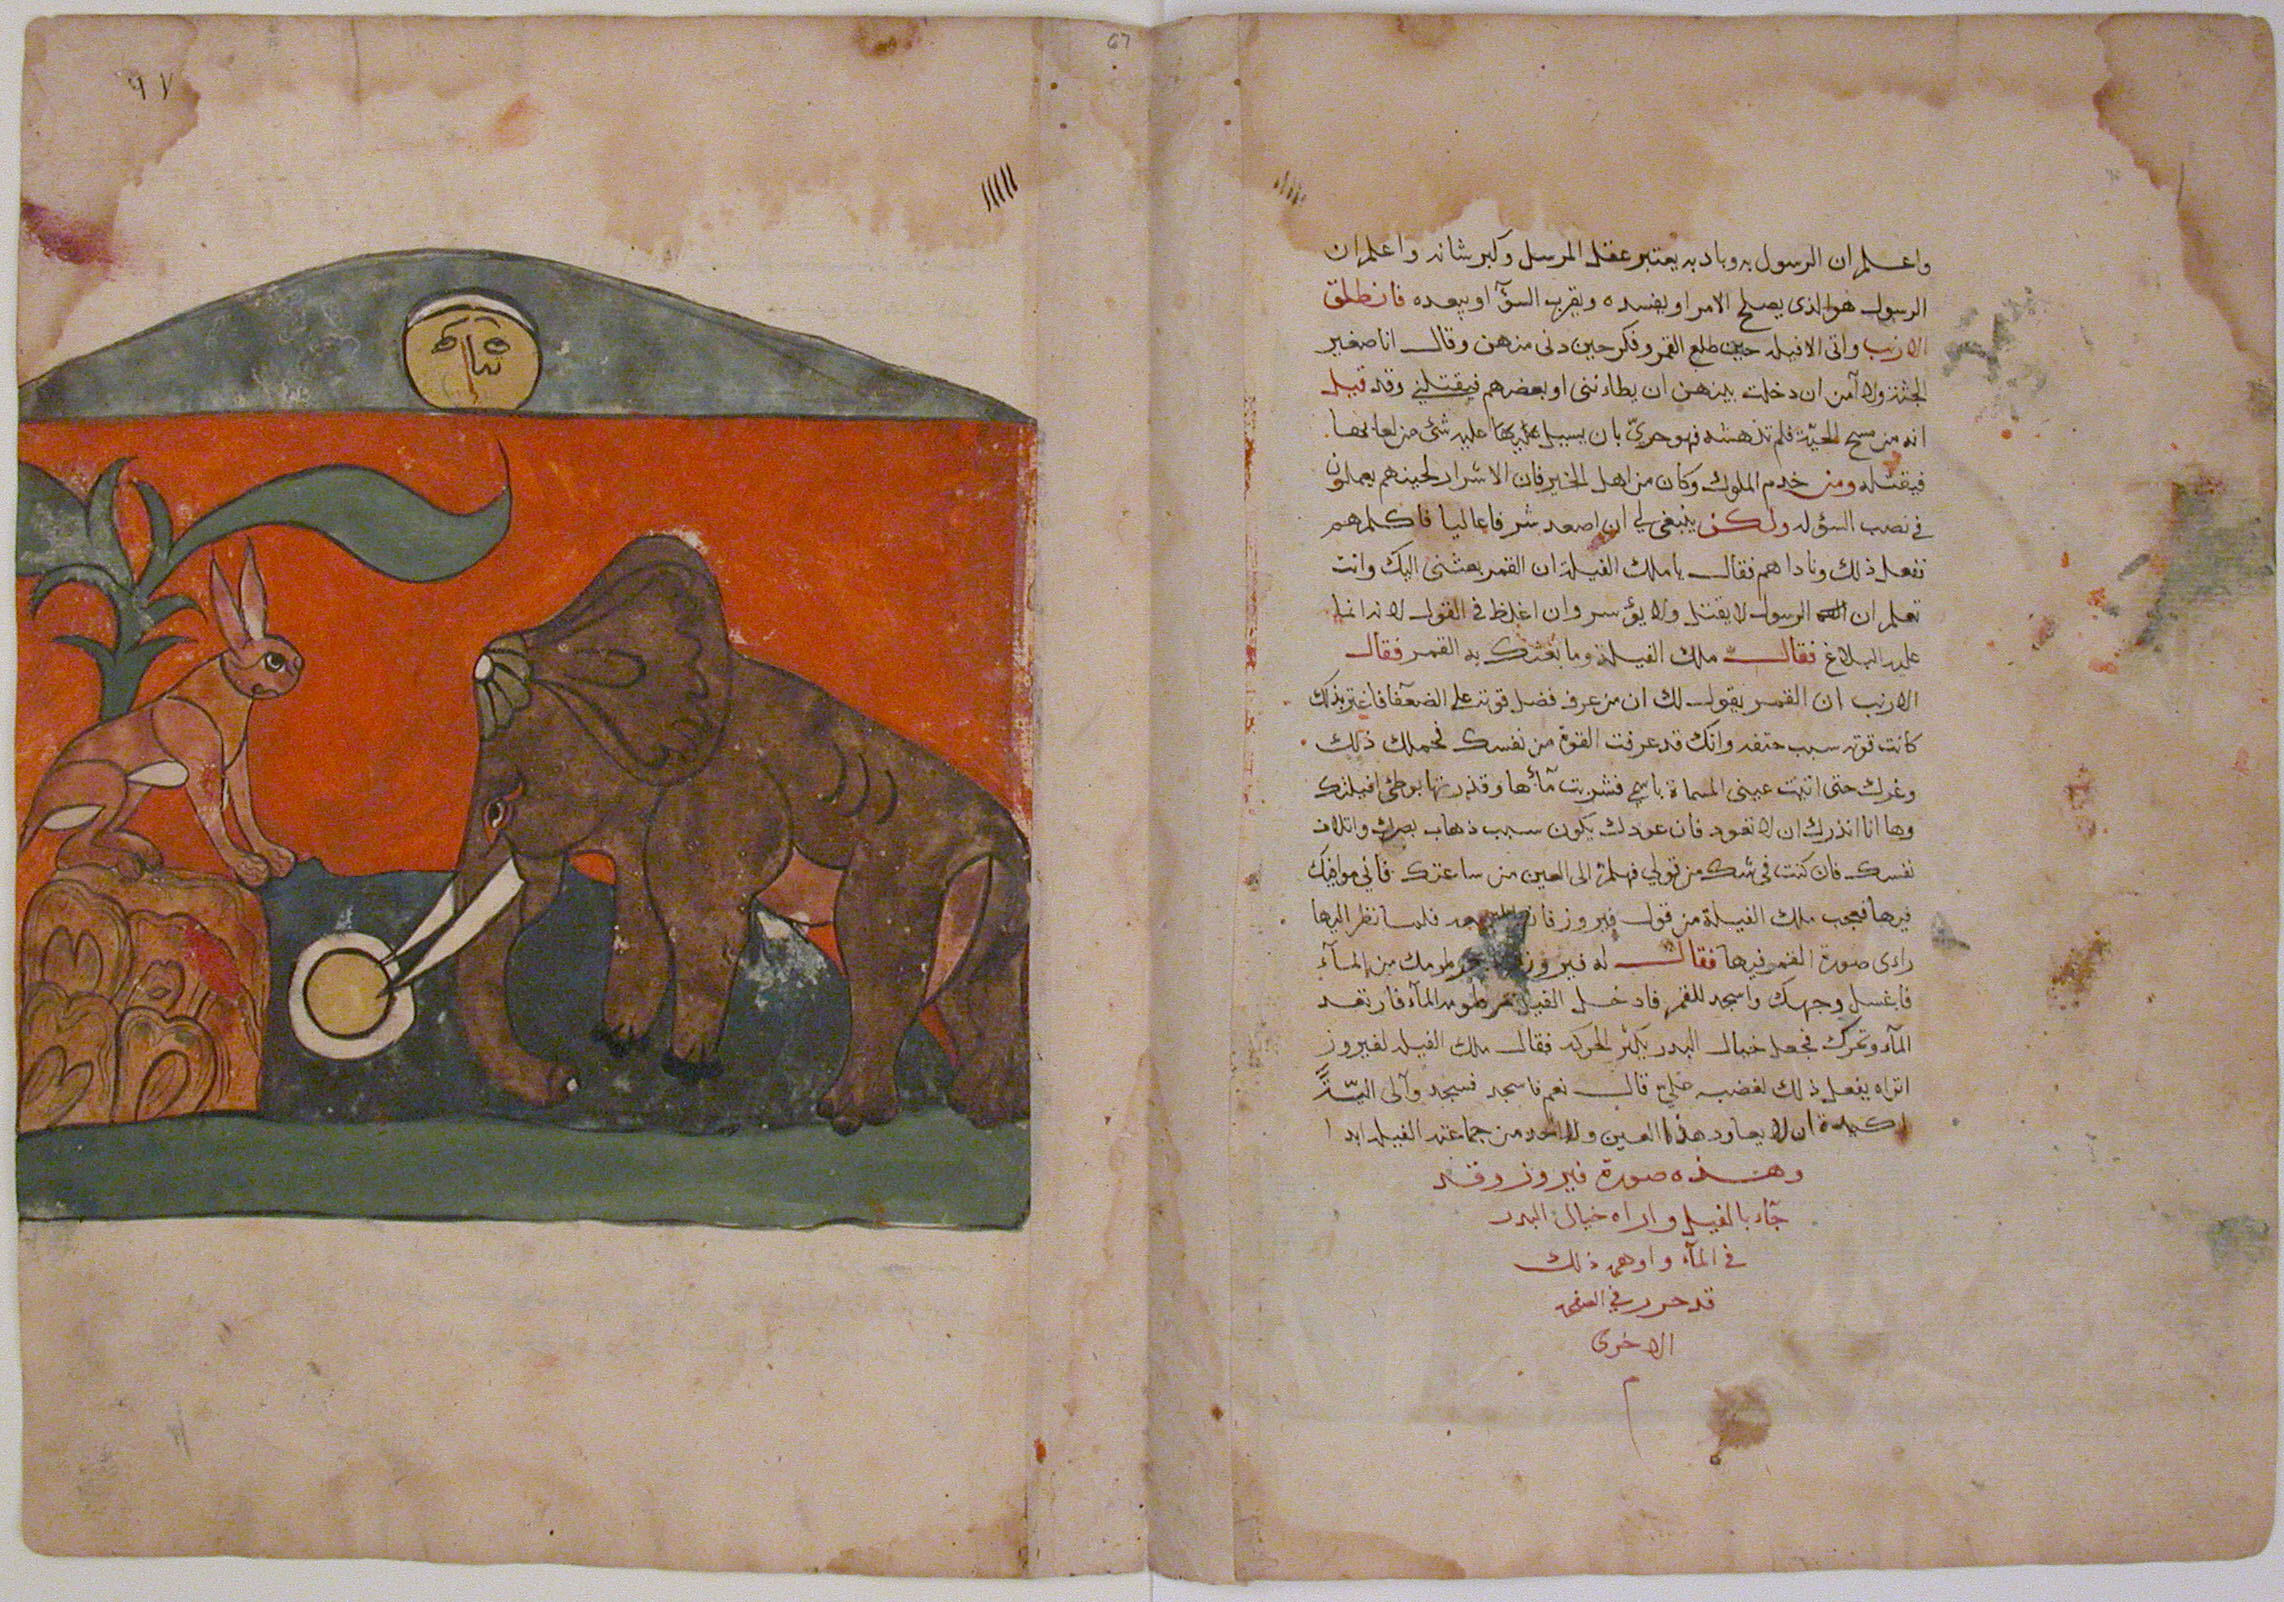 واعلم ان الرسول به وبادبه يعتبر عقل المرسل وكبر شانه واعلم ان
الرسول هو الذى يصلح الامر او يفسده ويقرب السؤ او يبعده فانطلق
الارنب واتى الافيله حين طلع القمر وفكر حين دنى منهن وقال انا صغير
الجثة ولا آمن ان دخلت بينهن ان يطاءننى او بعضهم فيقتلنى وقد قيل
انه من مسح الحية فلم تنهشه فهو حرىّ بان يسيل عليه شئ من لعابها
فيقتله ومن خدم الملوك وكان من اهل الخير فان الاشرار لحينهم يعملون
فى نصب السؤ له ولكن ينبغى لى ان اصعد شرفا عاليا فاكلمهم
ففعل ذلك وناداهم فقال يا ملك الفيلة ان القمر بعثنى اليك وانت
تعلم ان الرسول لا يقتل ولا يؤسر وان اغلظ فى القول لانه انما
عليه البلاغ فقال ملك الفيلة وما بعثك به القمر فقال
الارنب ان القمر يقول لك ان من عرف فضل قوته على الضعفآ فاغتر بذلك
كانت قوته سبب حتفه وانك قد عرفت القوة من نفسك فحملك ذلك
وغرك حتى اتيت عينى المسماة باسمى فشربت مآءها وقذرتها بوطئ افيلتك
وها انا انذرك ان لا تعود فان عودك يكون سبب ذهاب بصرك واتلاف
نفسك فان كنت فى شك من قولى فهلم الى العين من ساعتك فانى موافيك
فيها فعجب ملك الفيلة من قول فيروز فانطلق معه فلما نظر اليها
راى صورة القمر فيها فقال له فيروز خرطومك من المآء
فاغسل وجهك واسجد للقمر فادخل الفيل خرطومه المآء فارتعد
المآء وتحرك فجعل خيال البدر يكثر الحركه فقال ملك الفيله لفيروز
اتراه يفعل ذلك لغضبه علىّ قال نعم فاسجد فسجد وآلى اليّة
اكيدة ان لا يعاود هذه العين ولا احد من جماعته الفيله ابدا
وهذه صورة فيروز وقد
جآء بالفيل واراه خيال البدر
فى المآء واوهمه ذلك
قد حرر فى الصفحه
الاخرى
م
٩٧
67